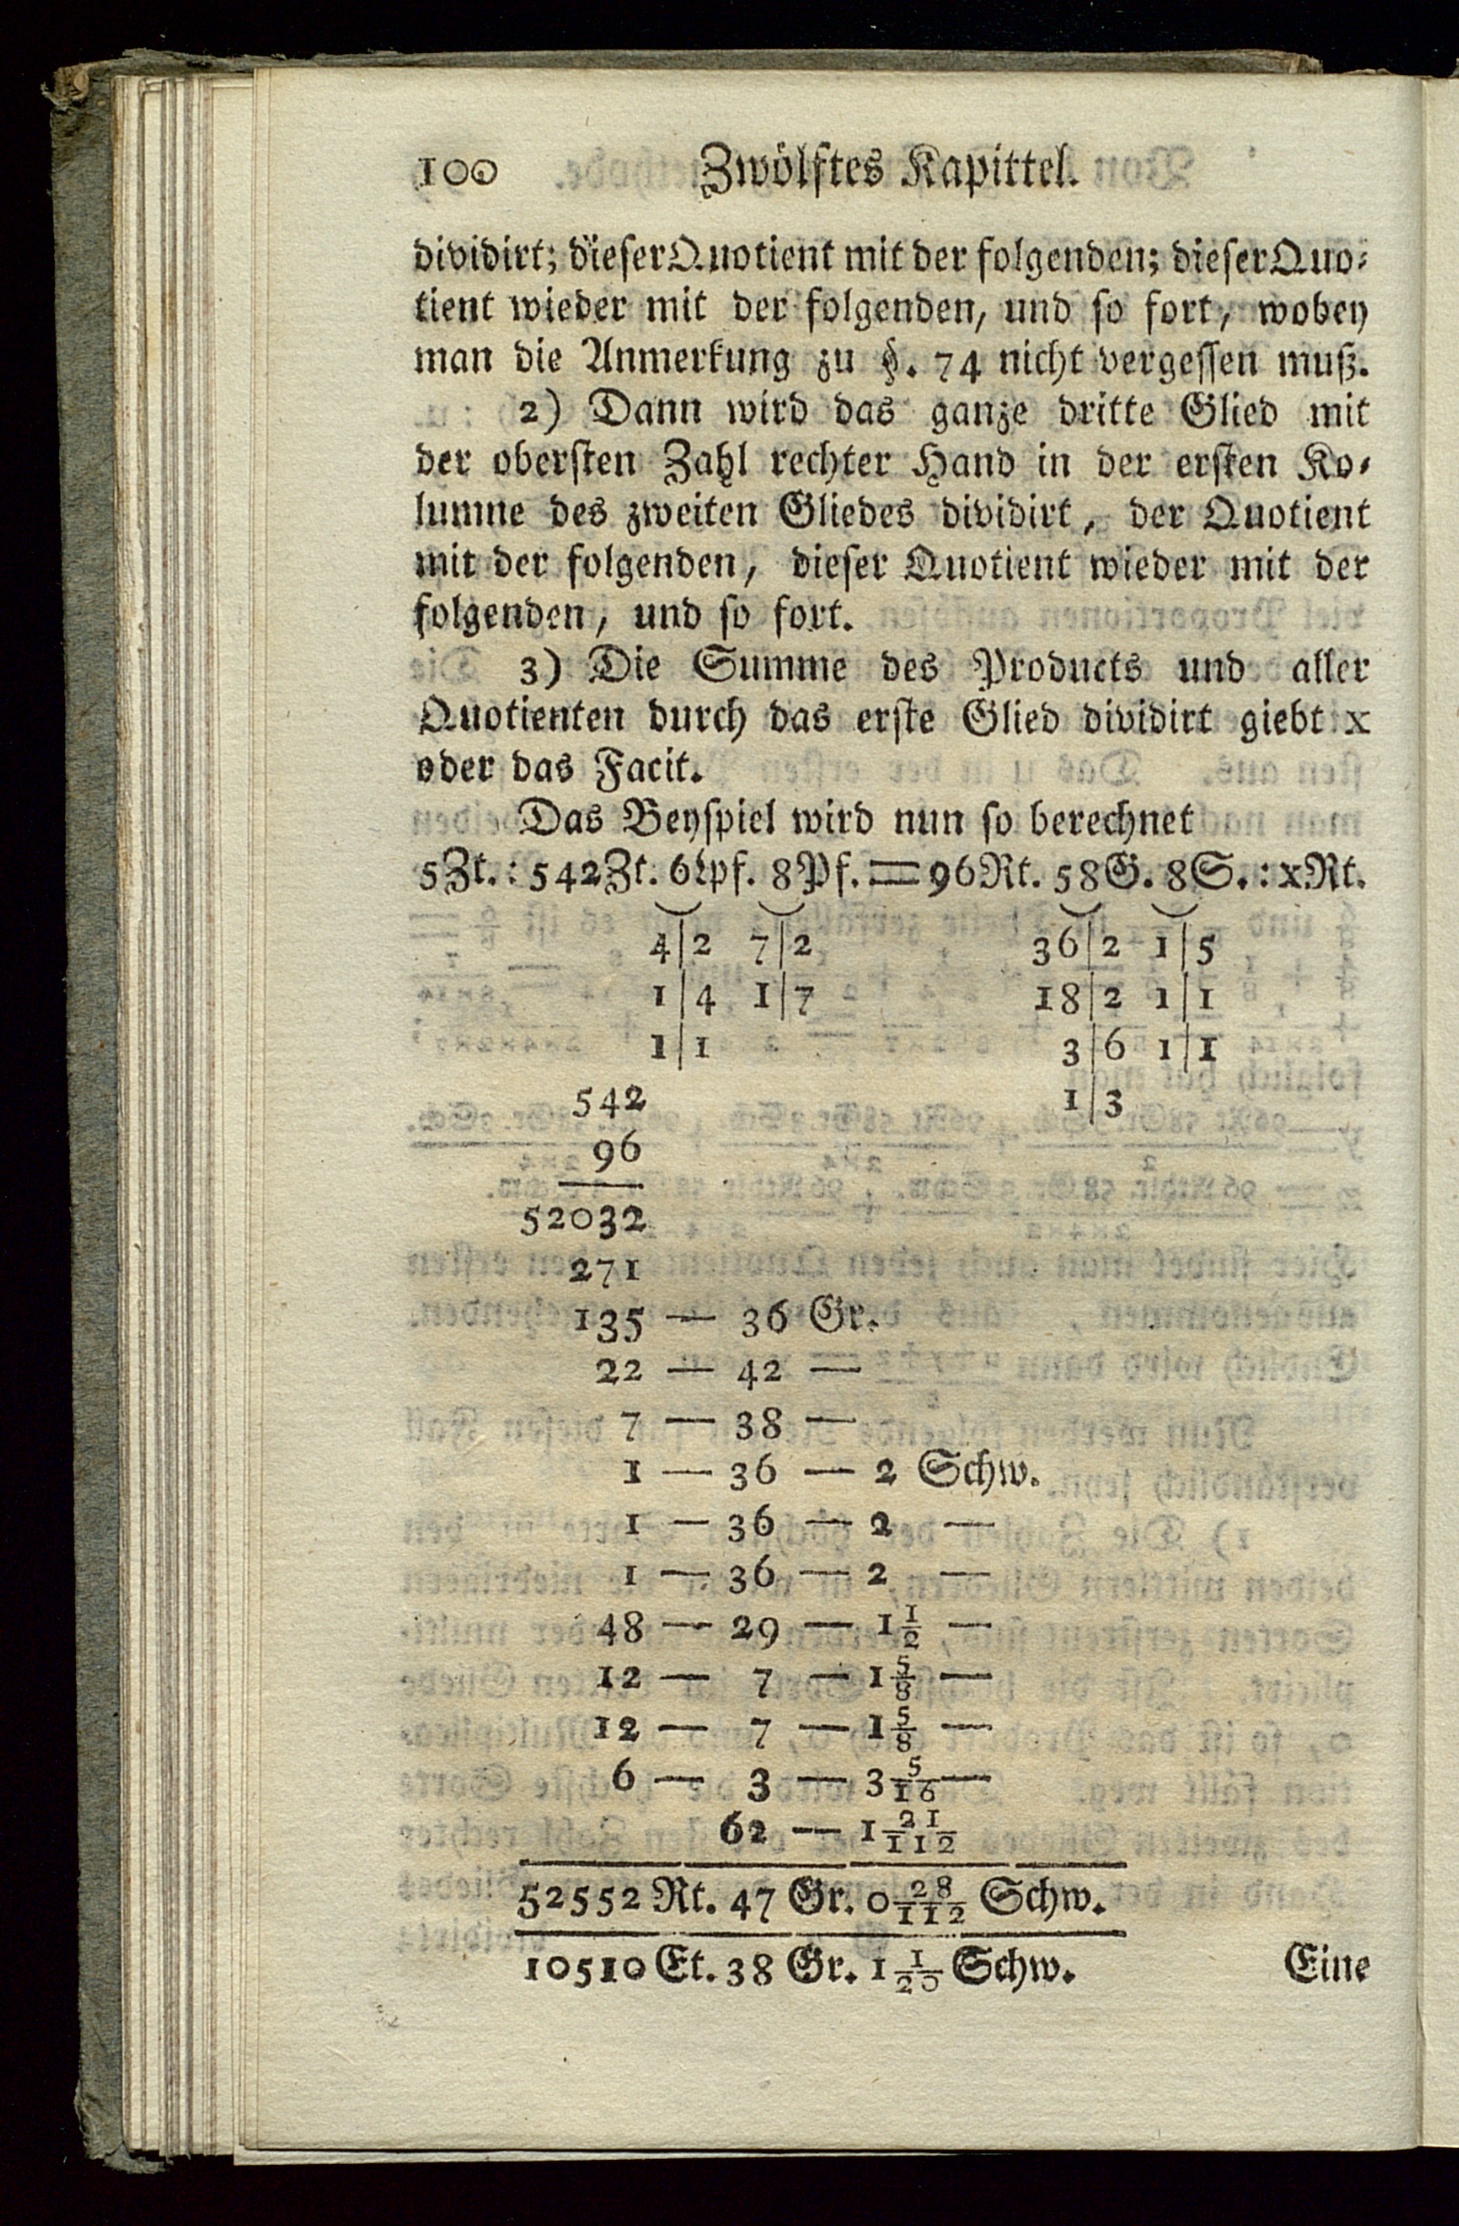 100 Zwölftes Kapittel.
dividirt; dieser Quotient mit der folgenden; dieser Quo-
tient wieder mit der folgenden, und so fort, wobey
man die Anmerkung zu §. 74 nicht vergessen muß.
2) Dann wird das ganze dritte Glied mit
der obersten Zahl rechter Hand in der ersten Ko-
lumme des zweiten Gliedes dividirt, der Quotient
mit der folgenden, dieser Quotient wieder mit der
folgenden, und so fort.
3) Die Summe des Products und aller
Quotienten durch das erste Glied dividirt giebt x
oder das Facit.
Das Beyspiel wird nun so berechnet
5Zt. : 542Zt. 6Lpf. 8Pf. = 96Rt. 58G. 8S. : xRt.
4|2 7|2 36|2 1|5
1|4 1|7 18|2 1|1
1|1 3|6 1|1
542 1|3
96
52032
271
135 — 36 Gr.
22 — 42 —
7 — 38 —
1 — 36 — 2 Schw.
1 — 36 — 2 —
1 — 36 — 2 —
48 — 29 — 1 1/2 —
12 — 7 — 1 5/8 —
12 — 7 — 1 5/8 —
6 — 3 — 3 5/16 —
62 — 1 21/112
52552 Rt. 47 Gr. 0 28/112 Schw.
10510 Et. 38 Gr. 1 1/20 Schw. Eine